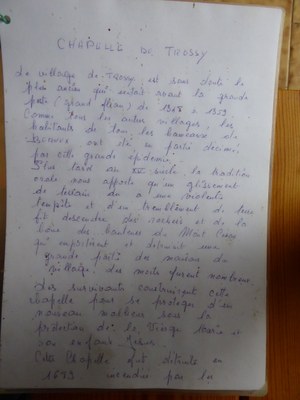 CHAPELLE DE TROSSY
Le village de Trossy est sans doute le
plus ancien qui existait avant la grande
peste (grand fleau) de 1348 à 1353.
Comme tous les autres villages, les
habitants de tous les hameaux de
Bernex ont été en partie décimés
par cette grande epidemie.
Plus tard au siecle, la tradition
orale nous apporte qu'un glissement
de terrain du a une violente
tempête et d'un tremblement de terre
fit descendre des rochers et de la
boue des hauteurs du Mont
qui emportèrent et détruisirent une
grande partie des maisons du
village. Les morts furent nombreux.
Les survivants construisirent cette
chapelle pour se proteger d'un
nouveau malheur sous la
protection de la Vierge Marie et
son enfant Jesus.
Cette Chapelle fut détruite en
1693 incendiée par les